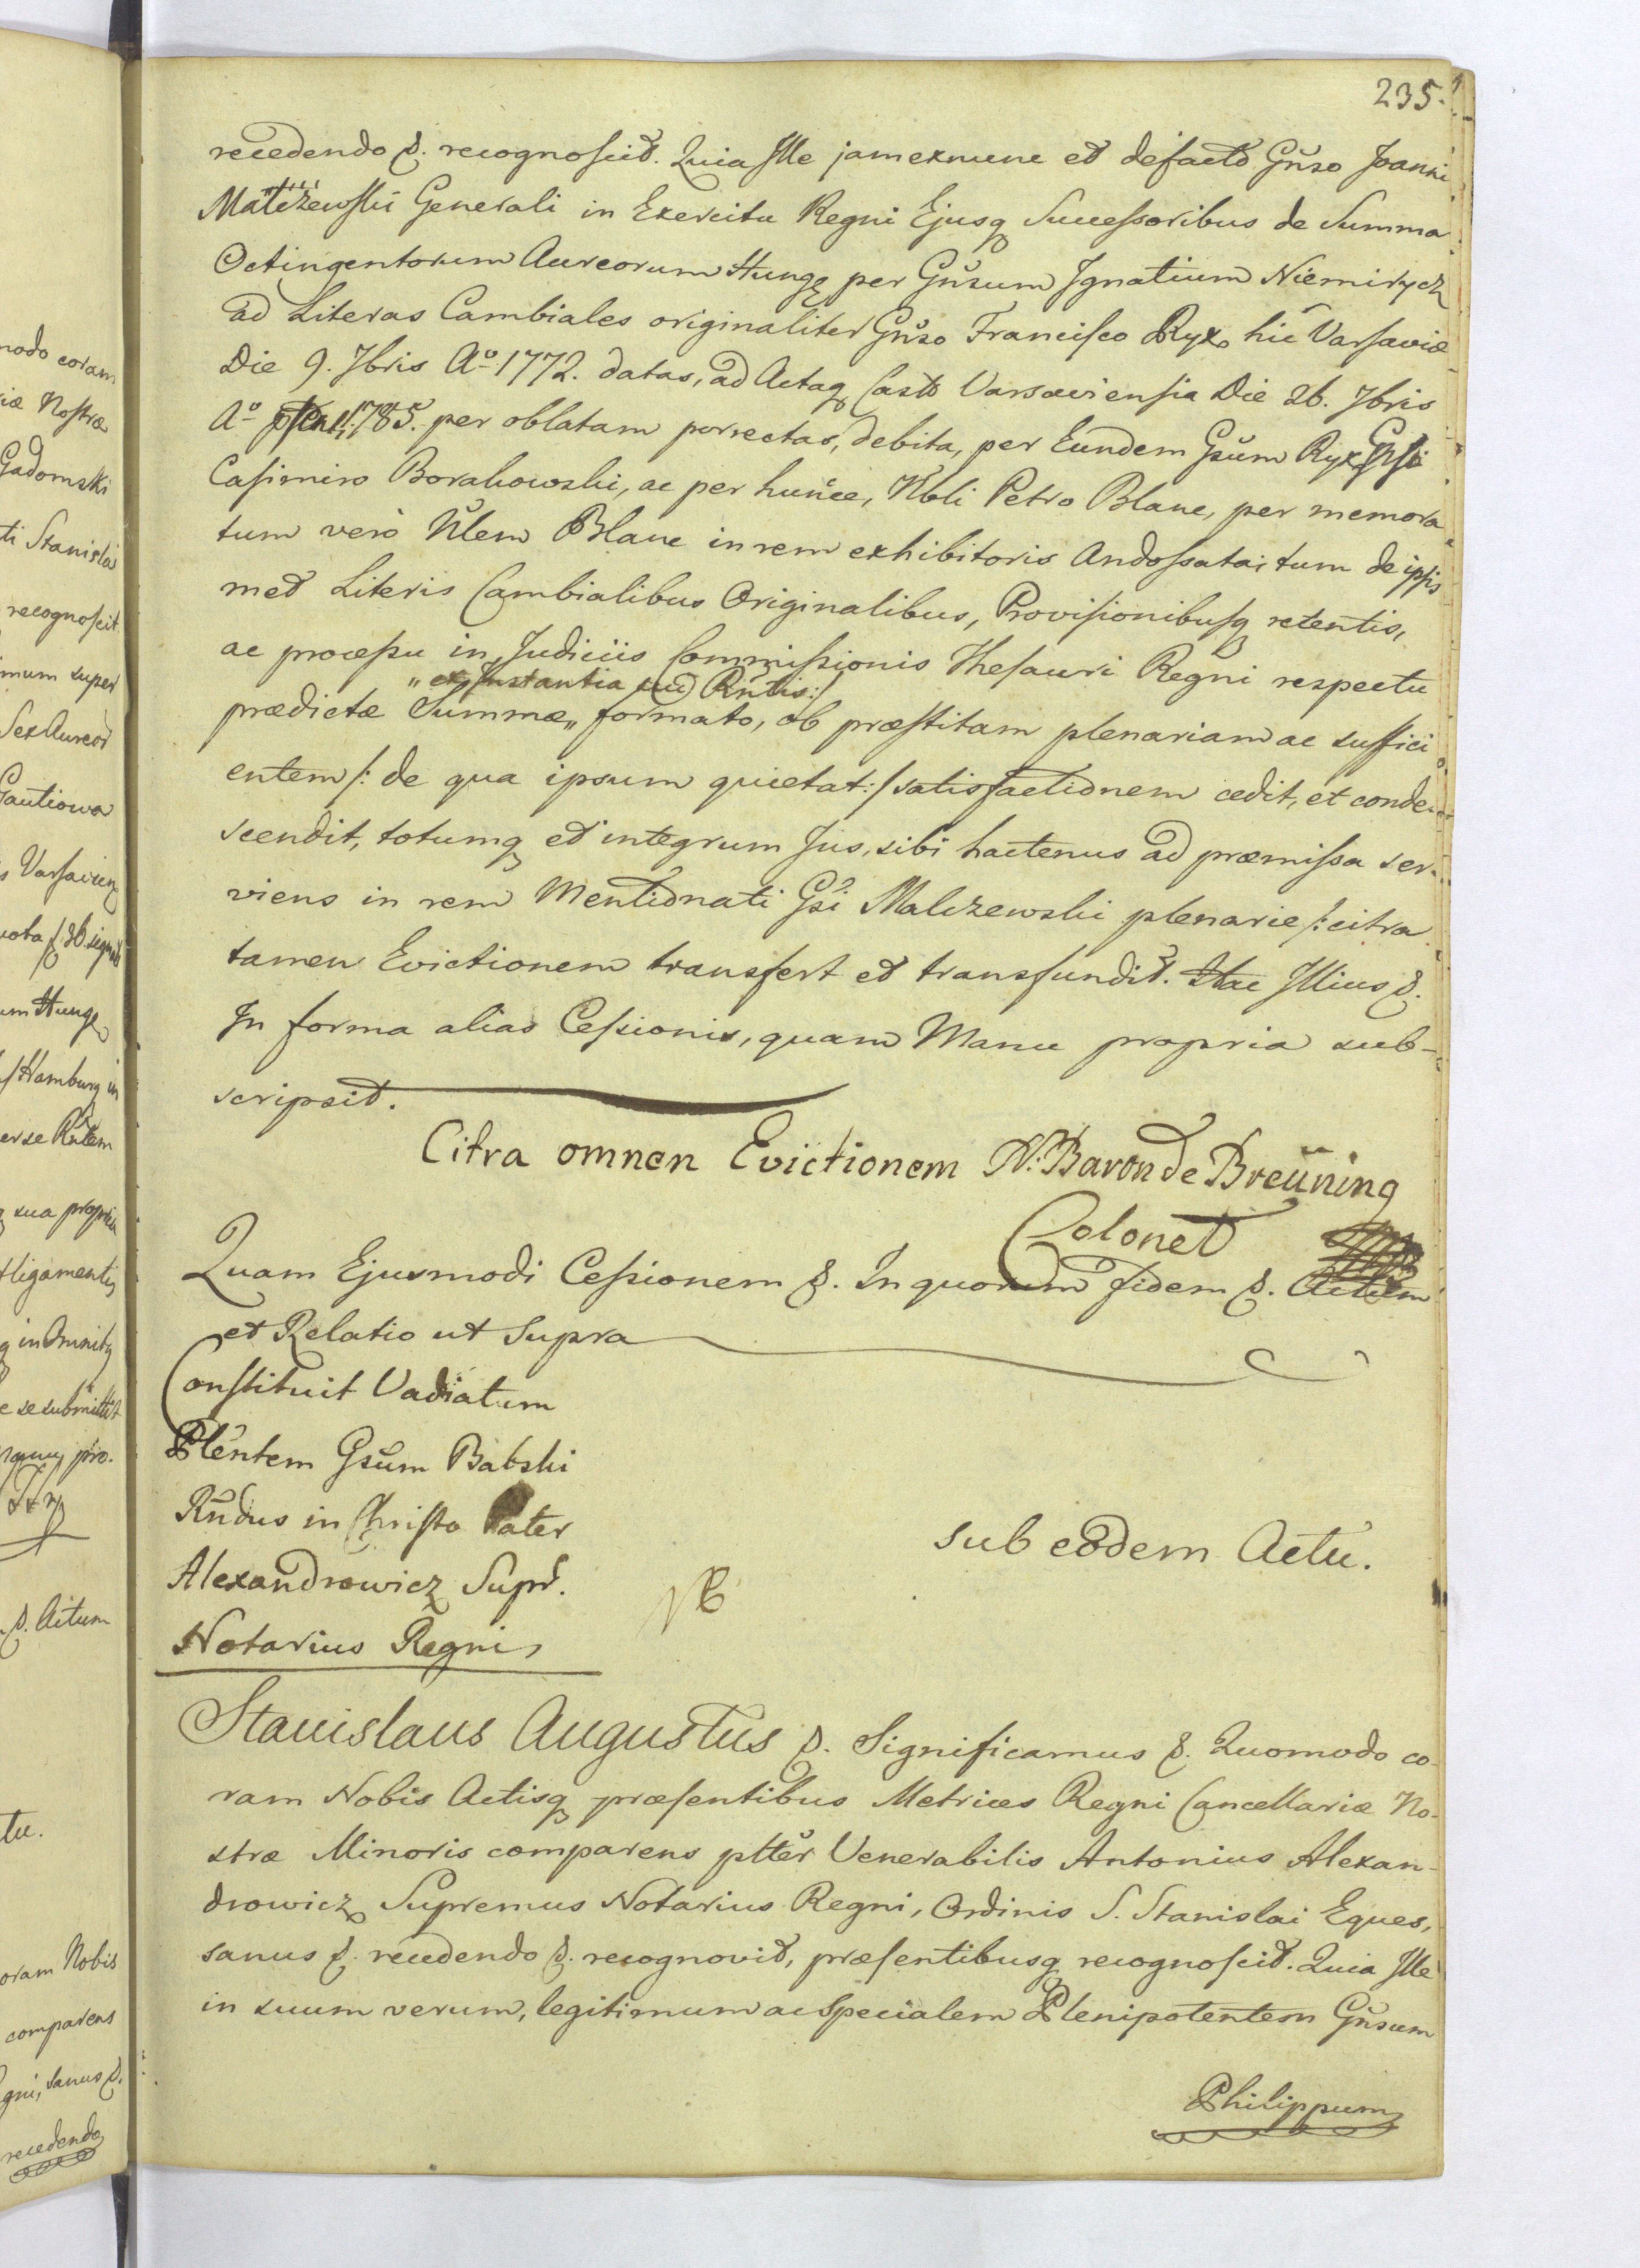 235.
recedendo &. recognoscit. Quia Ille jam exnunc et defacto Gnso Joanni
Malczewski Generali in Exercitu Regni Ejusq Successoribus de Summa
Octingentorum Aureorum Hungę per Gnsum Ignatium Niemirycz
ad Literas Cambiales originaliter Gnso Francisco Ryx hic Varsaviæ
Die 9. 7bris Aº 1772. datas, ad Actaq Castr Varsaviensia Die 26. 7bris
Aº 1785. per oblatam porrectas, debita, per Eundem Gsum Ryx Gnso
Casimiro Borakowski, ac per hunce, Nbli Petro Blanc, per memora
tum verò Nlem Blanc in rem exhibitoris Andossata; tum de ipsis
met Literis Cambialibus Originalibus, Provisionibusq retentis,
ac processu in Judiciis Commissionis Thesauri Regni respectu
„ ex Instantia sui Rntis:/
prædictæ Summæ „ formato, ob præstitam plenariam ac suffici
entem /: de qua ipsum quietat :/ satisfactionem cedit, et conde-
scendit, totumq et integrum Jus, sibi hactenus ad præmissa ser-
viens in rem Mentionati Gsi Malczewski plenarie /: citra
tamen Evictionem transfert et transfundit. Hac Illius &.
In forma alias Cessionis, quam Manu propria sub-
scripsit.
Citra omnen Evictionem N: Baron de Breüning
Colonel
Quam Ejusmodi Cessionem &. In quorum fidem &. Actum
et Relatio ut Supra
Constituit Vadiatum
Plentem Gsum Babski
Rndus in Christo Pater
Alexandrowicz Supr.
Notarius Regni,
sub eodem Actu.
Stanislaus Augustus &. Significamus &. Quomodo co-
ram Nobis Actisq præsentibus Metrices Regni Cancellariæ No-
stræ Minoris comparens pltter Venerabilis Antonius Alexan-
drowicz Supremus Notarius Regni, Ordinis S. Stanislai Eques,
sanus &. recedendo &. recognovit, præsentibusq recognoscit. Quia Ille
in suum verum, legitimum ac Specialem Plenipotentem Gnsum
Philippum